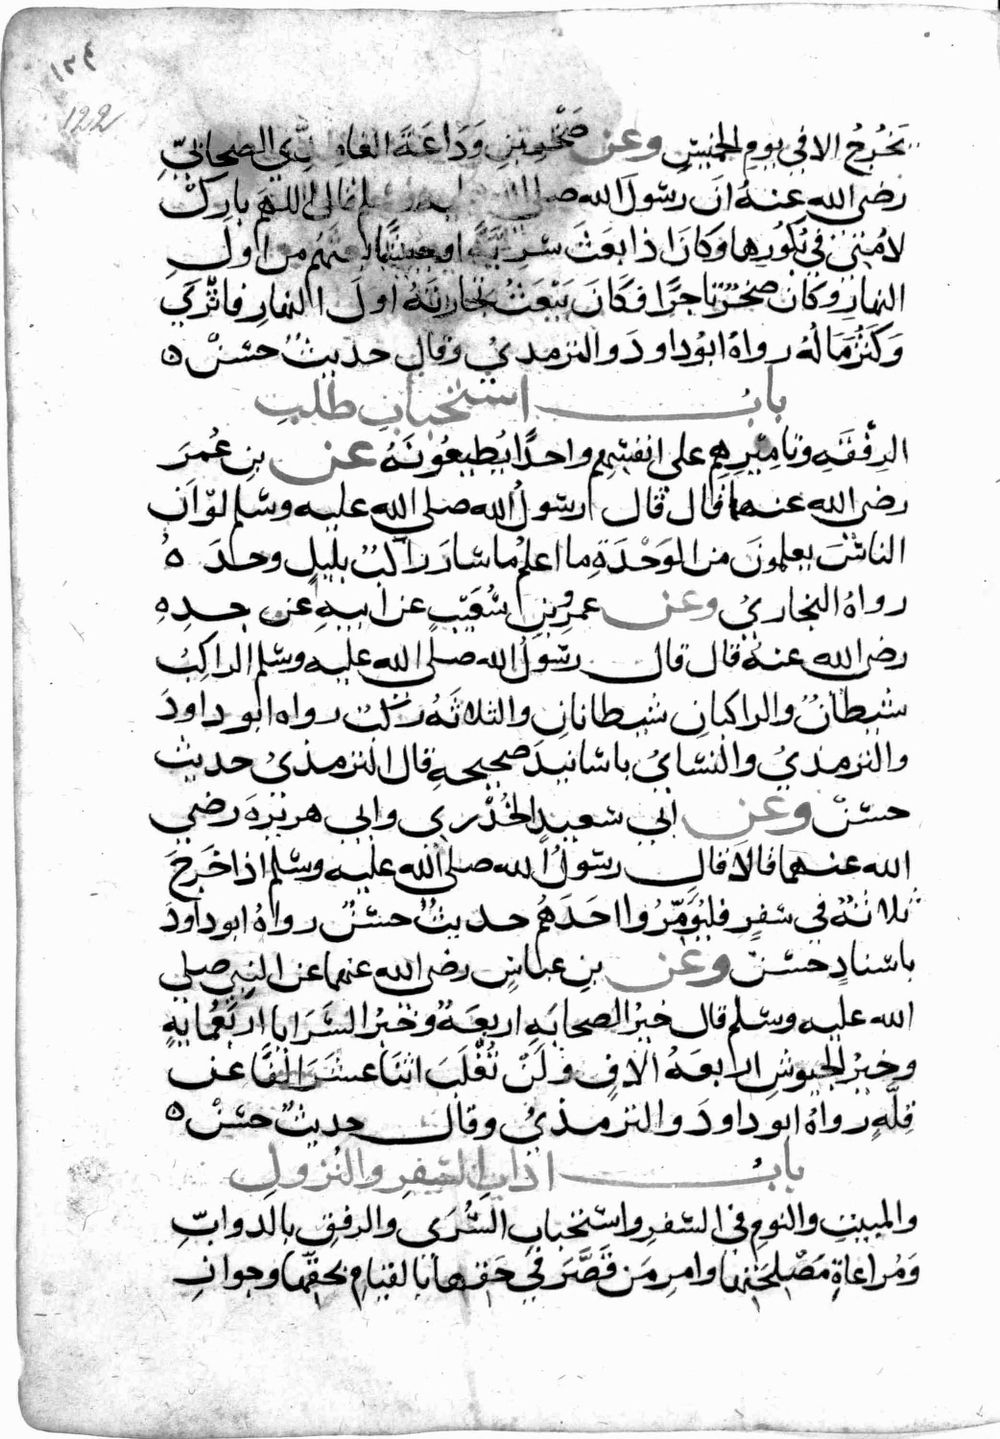 ١٢٤
122
يَخرُجُ الا في يوم الخميسِ وعن صَخْرِ بنِ وَدَاعَةَ الغامدي الصحابيِّ
رضى الله عنهُ ان رسولَ الله صلى الله عليه وسلم قال اللهم بارك
لامتى في بكورها وكان اذا بعثَ سرِيَّةً او جيشًا بعثهُم من اولِ
النهار وكان صخرٌ تاجرًا فكان يبعَثُ تجارتَهُ اول النهارِ فاثرَي
وكثرَ مَالُهُ رواهُ ابوُ داودَ والترمذيُ وقال حديثٌ حسَنٌ ٥
بابُ استحبابِ طلبِ
الرفقَهِ وتامِيْرِهِم على انفسِهِم واحدًا يُطيعُونَهُ عن بنِ عُمرَ
رضى الله عنهما قال قال رسولُ الله صلى الله عليه وسلم لو ان
الناسَ يعلمونَ من الوَحْدَةِ ما اعلمُ ما سَارَ راكبٌ بليلٍ وحدَهُ ٥
رواهُ البخاريُ وعن عمرو بن شُعَيْبٍ عن ابيهِ عن جدِهِ
رضى الله عنهُ قال قال رسولُ الله صلى الله عليه وسلم الراكبُ
شيطانٌ والراكبانِ شيطانانِ والثلاثهُ ركبٌ رواه ابو داودَ
والترمذيُ والنسايُ باسانيدَ صحيحهٍ قال الترمذيُ حديثٌ
حسَنٌ وعن ابي سَعيدٍ الخُدْرِي وابي هريرةَ رضي
الله عنهما قالا قال رسولُ الله صلى الله عليه وسلم اذا خَرجَ
ثلاثهٌ في سَفرٍ فليُؤَمِّرُوا احدَهُم حديثٌ حسَنٌ رواهُ ابو داودَ
باسنادٍ حسَنٍ وعن بنِ عباسٍ رضى الله عنهما عن النبي صلي
الله عليه وسلم قال خيرُ الصحابهِ اربعهٌ وخيرُ السَرَايا اربعُمايهٍ
وخيرُ الجيوشِ اربعهُ الافٍ ولن تُغْلَبَ اثنَا عشَرَ الفًا عن
قِلَّهٍ رواهُ ابو داودَ والترمذيُ وقال حديثٌ حسَنٌ ٥
بابُ ادابِ السَفرِ والنُزولِ
والمبيتِ والنومِ في السَفرِ واستحبابِ السُّرَى والرفقِ بالدوابِّ
ومُراعاةِ مَصْلحَتِها وامرِ مَن قَصَّرَ في حَقِها بالقيامِ بحقِها وجوازِ